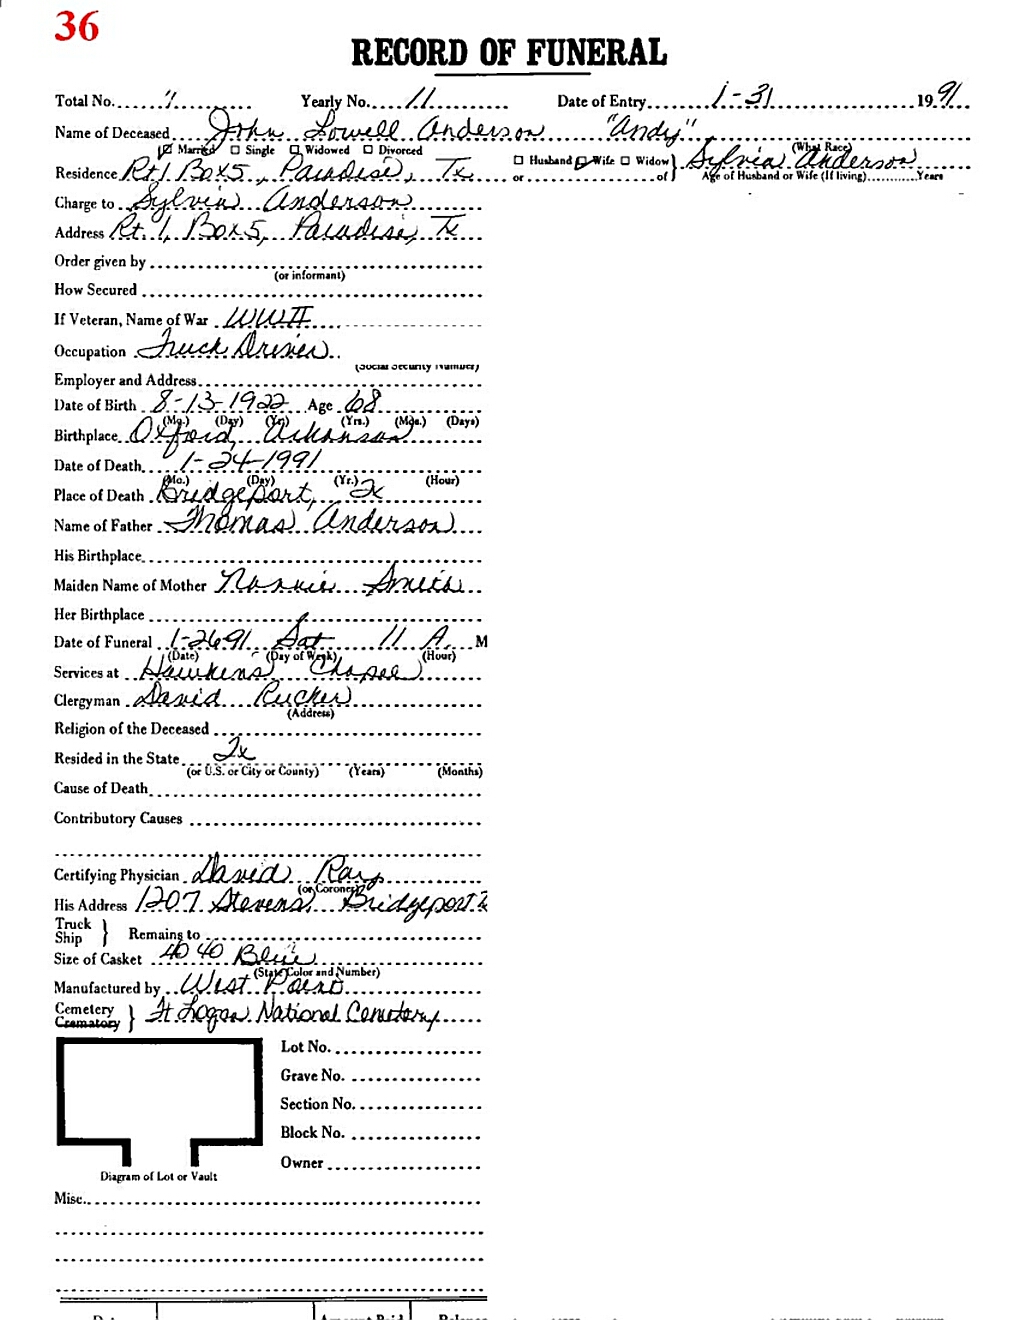 36
RECORD OF FUNERAL
Total No. 11 Yearly No. 11 Date of Entry 1-31 1991
Name of Deceased John Lowell Anderson "Andy"
☑ Married ☐ Single ☐ Widowed ☐ Divorced (What Race)
Residence Rt. 1 Box 5, Paradise, Tx ☐ Husband ☑ Wife ☐ Widow or of } Sylvia Anderson
Age of Husband or Wife (If living) Years
Charge to Sylvia Anderson
Address Rt. 1, Box 5, Paradise, Tx
Order given by
(or informant)
How Secured
If Veteran, Name of War WWII
Occupation Truck Driver
(Social Security Number)
Employer and Address
Date of Birth 8-13-1922 Age 68
(Mo.) (Day) (Yr.) (Yrs.) (Mos.) (Days)
Birthplace Oxford, Arkansas
Date of Death 1-24-1991
(Mo.) (Day) (Yr.) (Hour)
Place of Death Bridgeport, Tx
Name of Father Thomas Anderson
His Birthplace
Maiden Name of Mother Nannie Smith
Her Birthplace
Date of Funeral 1-26-91 Sat 11 A. M
(Date) (Day of Week) (Hour)
Services at Hawkins Chapel
Clergyman David Rucker
(Address)
Religion of the Deceased
Resided in the State Tx
(or U.S. or City or County) (Years) (Months)
Cause of Death
Contributory Causes
Certifying Physician David Ray
(or Coroner)
His Address 1207 Stevens, Bridgeport
Truck
Ship } Remains to
Size of Casket 4040 Blue
(State Color and Number)
Manufactured by West Point
Cemetery
Crematory } Ft. Logan National Cemetery
Lot No.
Grave No.
Section No.
Block No.
Owner
Diagram of Lot or Vault
Misc.
Amount Paid Balance